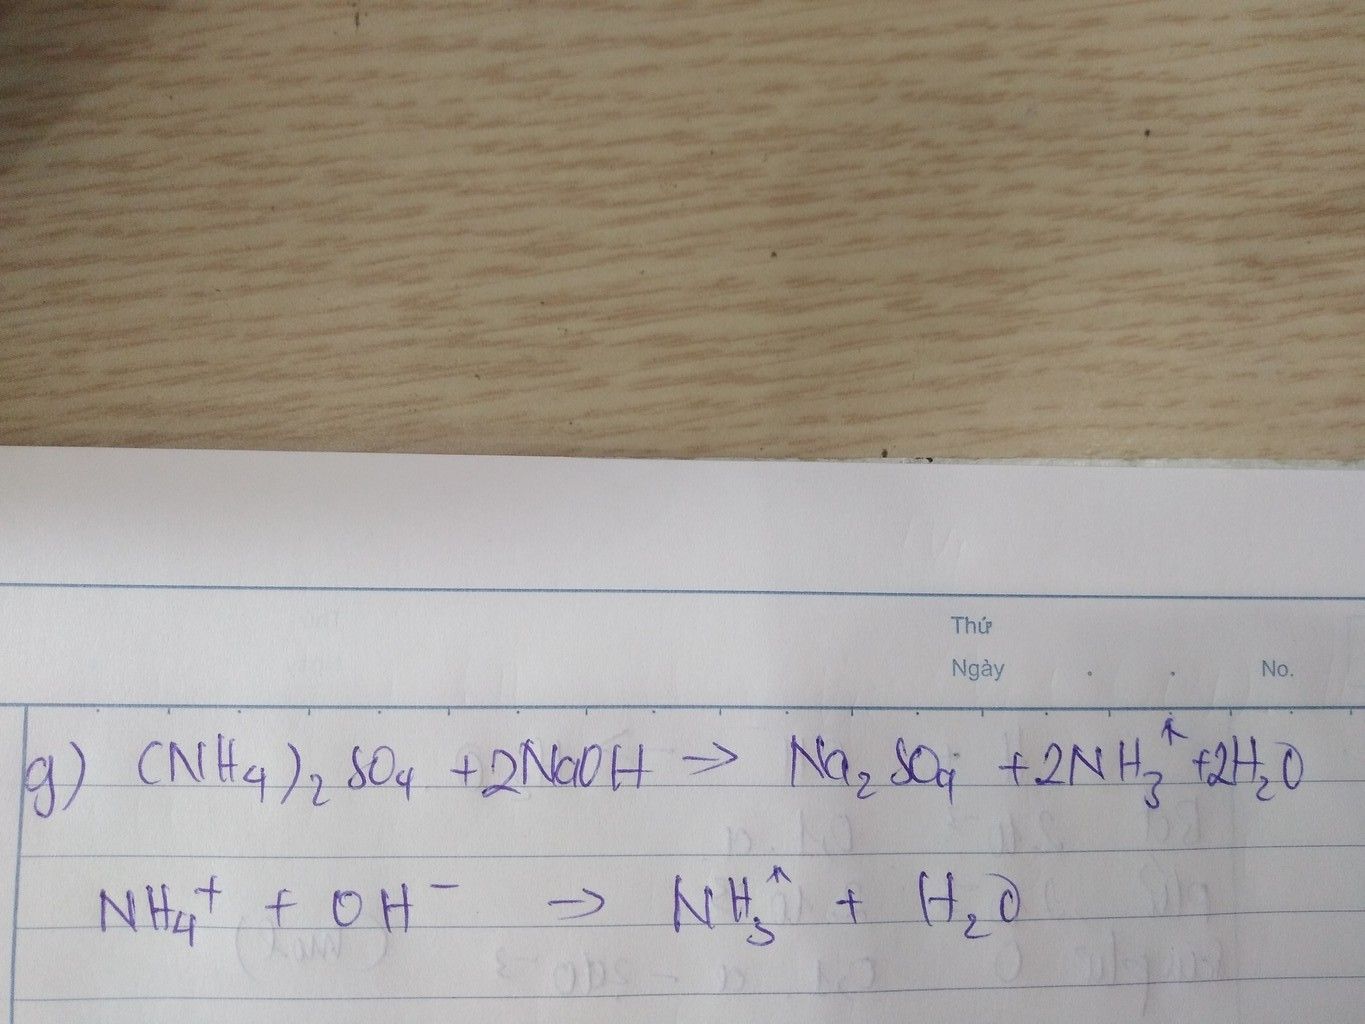 Thứ
Ngày . . No.
g) (NH₄)₂SO₄ + 2NaOH → Na₂SO₄ + 2NH₃↑ + 2H₂O
NH₄⁺ + OH⁻ → NH₃↑ + H₂O